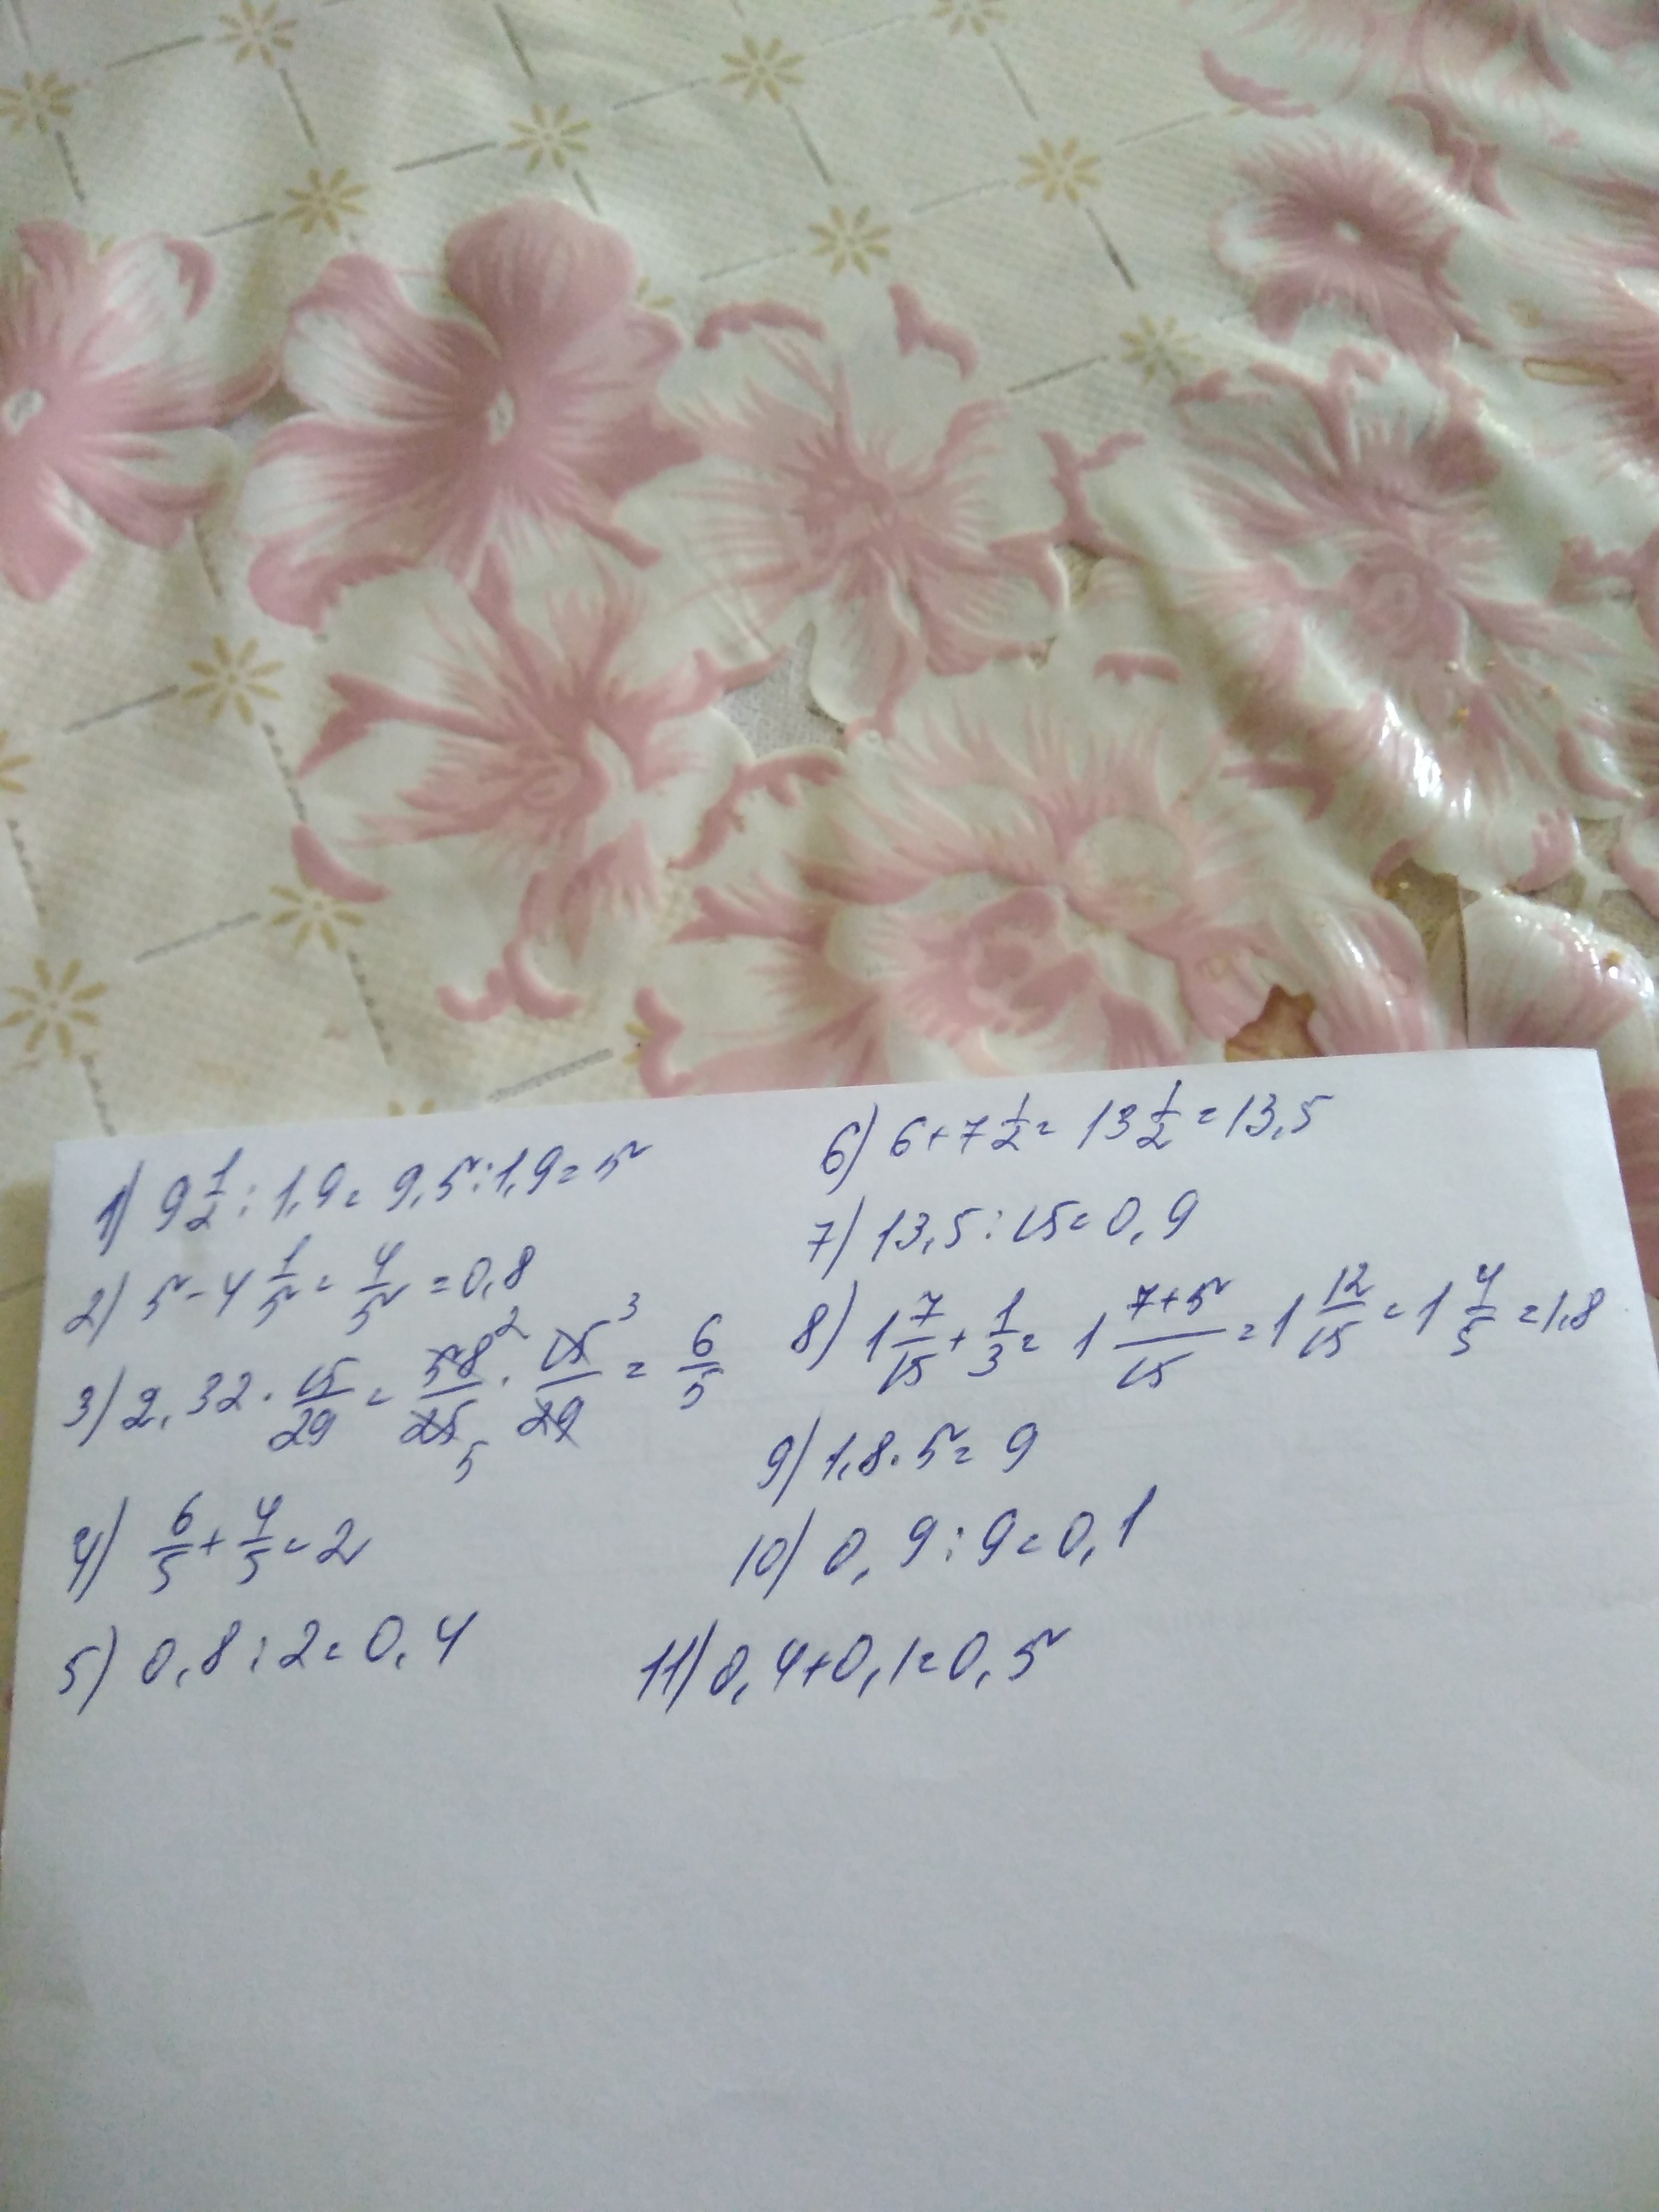 1) 9 1/2 : 1,9 = 9,5 : 1,9 = 5
2) 5 - 4 1/5 = 4/5 = 0,8
3) 2,32 · 15/29 = 58 2/25 5 · 15 3/29 = 6/5
4) 6/5 + 4/5 = 2
5) 0,8 : 2 = 0,4
6) 6 + 7 1/2 = 13 1/2 = 13,5
7) 13,5 : 15 = 0,9
8) 1 7/15 + 1/3 = 1 7+5/15 = 1 12/15 = 1 4/5 = 1,8
9) 1,8 · 5 = 9
10) 0,9 : 9 = 0,1
11) 0,4 + 0,1 = 0,5